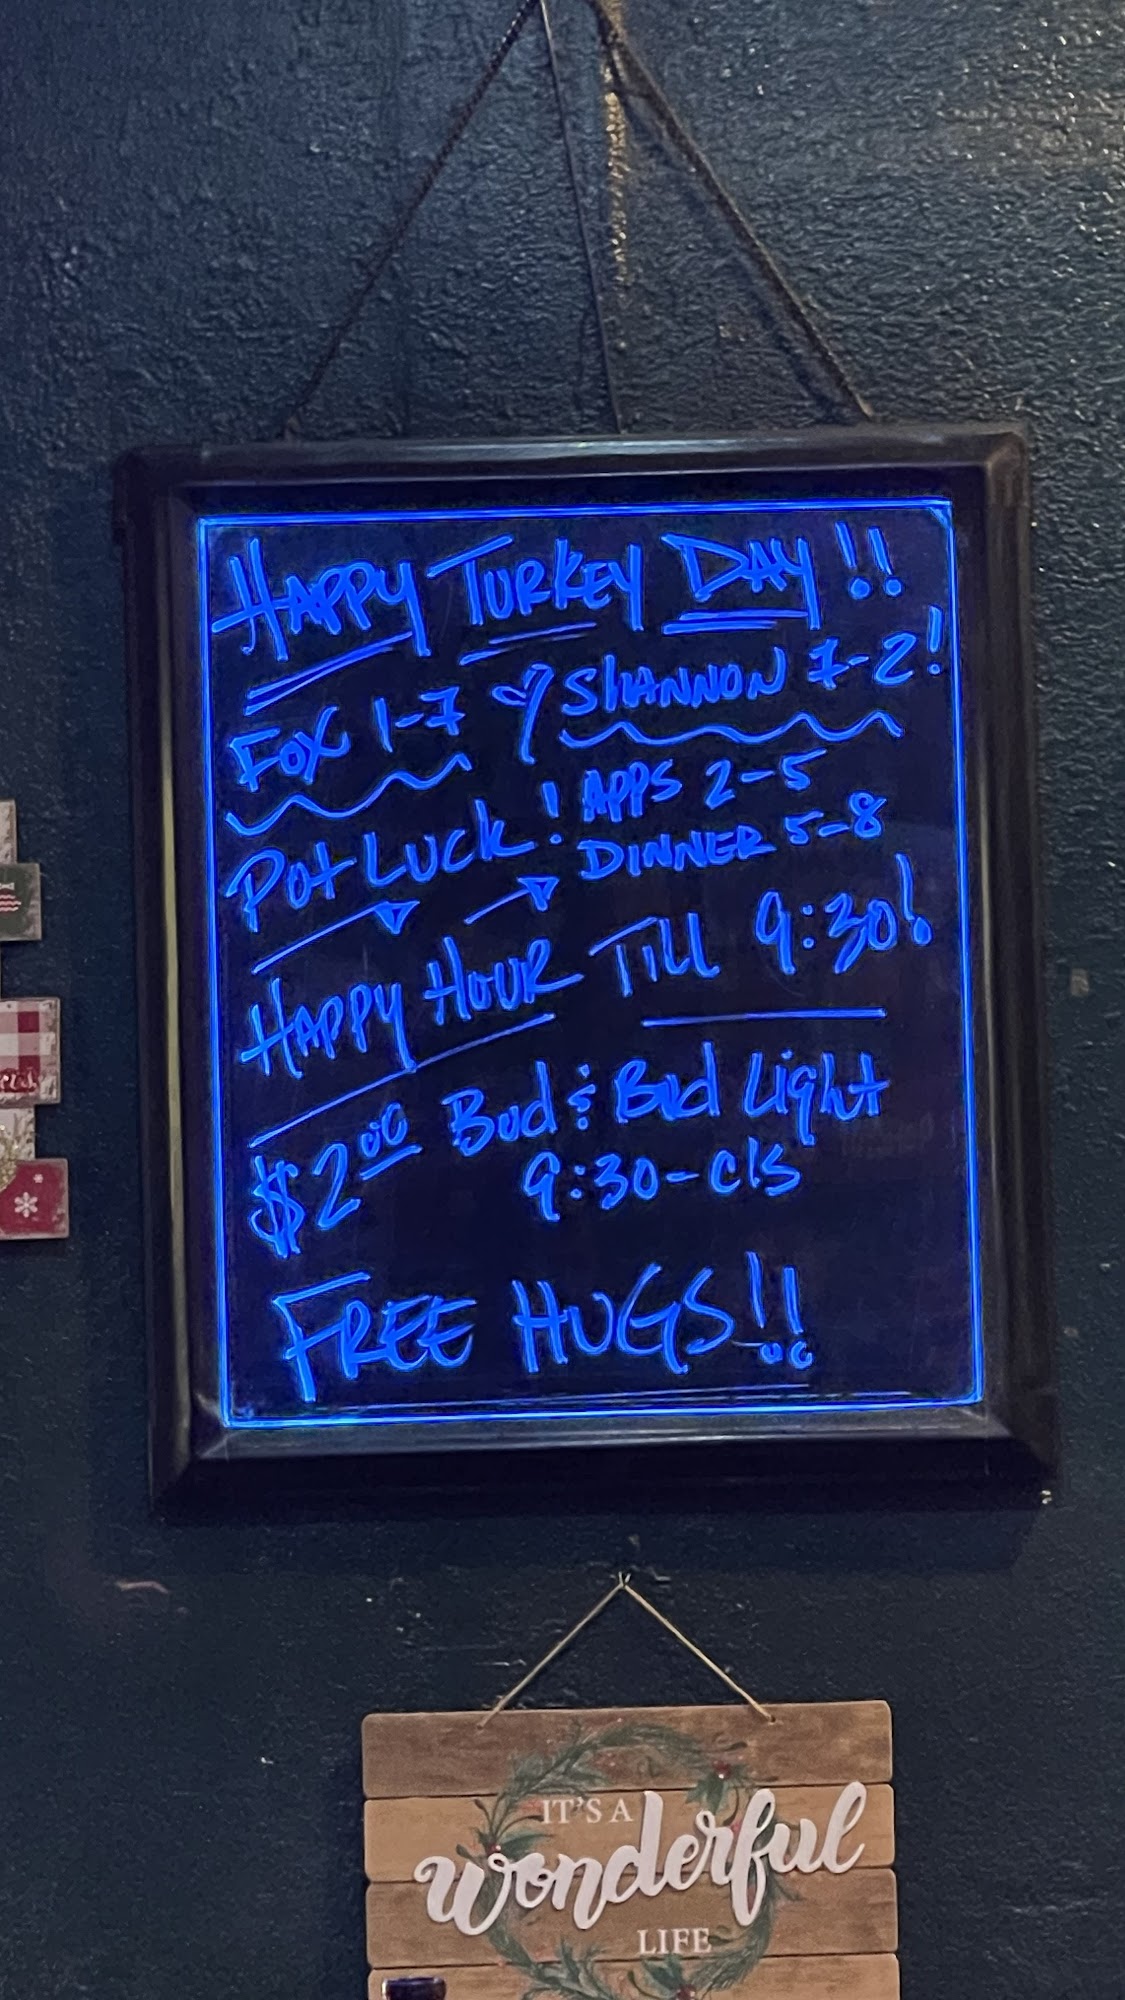 HAPPY TURKEY DAY!!
FOX 1-7 ♡ SHANNON 7-2!
POT LUCK! APPS 2-5
DINNER 5-8
HAPPY HOUR TILL 9:30!
$2.00 Bud & Bud Light
9:30-cls
FREE HUGS!!
IT'S A
wonderful
LIFE